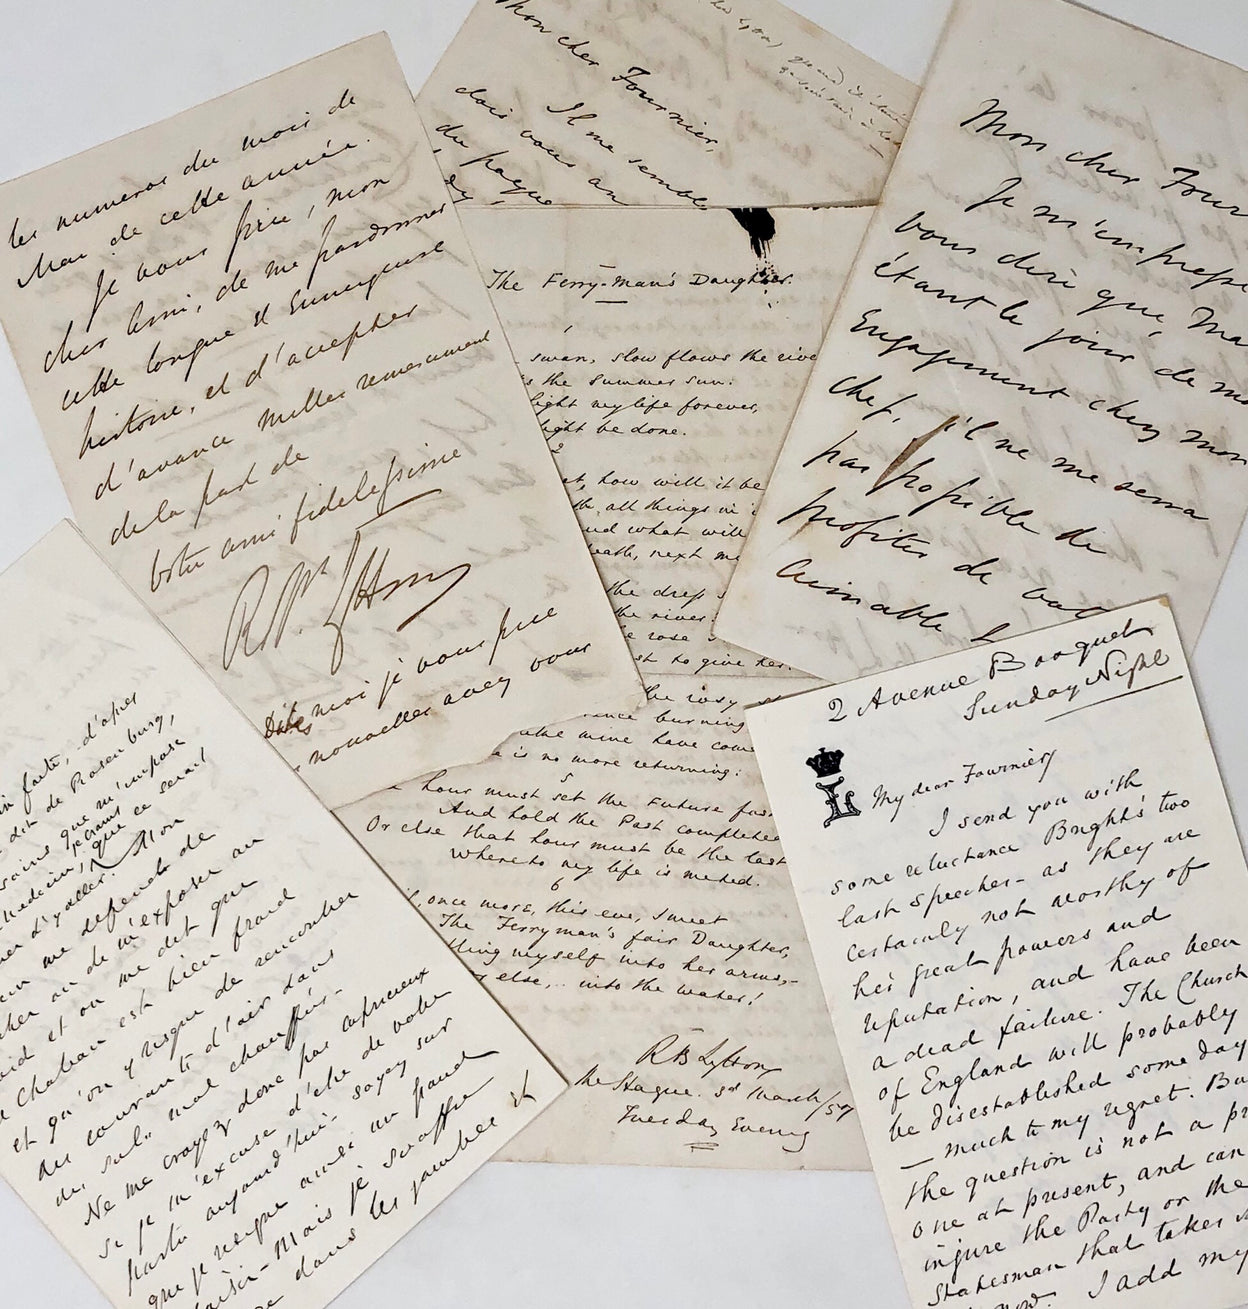 les numeros du mois de
Mai de cette année.
Je vous prie, mon
cher Ami, de me pardonner
cette longue et ennuyeuse
histoire, et d'accepter
d'avance milles remerciments
de la part de
votre ami fidelissime
RB Lytton
Dites moi je vous prie
nouvelles avez vous
Mon cher Fournier,
Il me semble
dois vous an
du paque
The Ferry-man's Daughter.
1
swan, slow flows the rive
the Summer sun:
light my life forever,
ight be done.
2
how will it be
all things in
and what will
next me
the drop
the river
rose
st to give her.
the rosy
burning
mine have com
is no more returning:
5
hour must set the Future fas
And hold the Past complete
Or else that hour must be the last
Whereto my life is meted.
6
once more, this eve, sweet
The Ferryman's fair Daughter,
fling myself into her arms,-
or else,.. into the water!
RB Lytton
The Hague. 3d March/57
Tuesday Evening
Mon cher Four
Je m'empre
vous dire que, Ma
étant le jour de mo
Engagement chez mon
chef, il ne me sera
pas possible de
profiter de vot
aimable
d'après
dit de Rosenburg,
que m'impose
que ce serait
d'y aller. Mon
me defend de
de m'exposer au
froid et on me dit que
Chateau est bien froid
et qu'on y risque de rencontrer
des courants d'air dans
mal chauffés.
Ne me croyez donc pas capricieux
si je m'excuse d'etre de votre
partie aujourd'hui. soyez sur
que je
Mais je souffre
dans les jambes et
2 Avenue Bosquet
Sunday Night
L
My dear Fournier
I send you with
some reluctance Bright's two
last speeches- as they are
certainly not worthy of
his great powers and
reputation, and have been
a dead failure. The Church
of England will probably
be disestablished some day
— much to my regret. Bu
the question is not a pr
one at present, and can
injure the Party or the
Statesman that takes
now. I add my